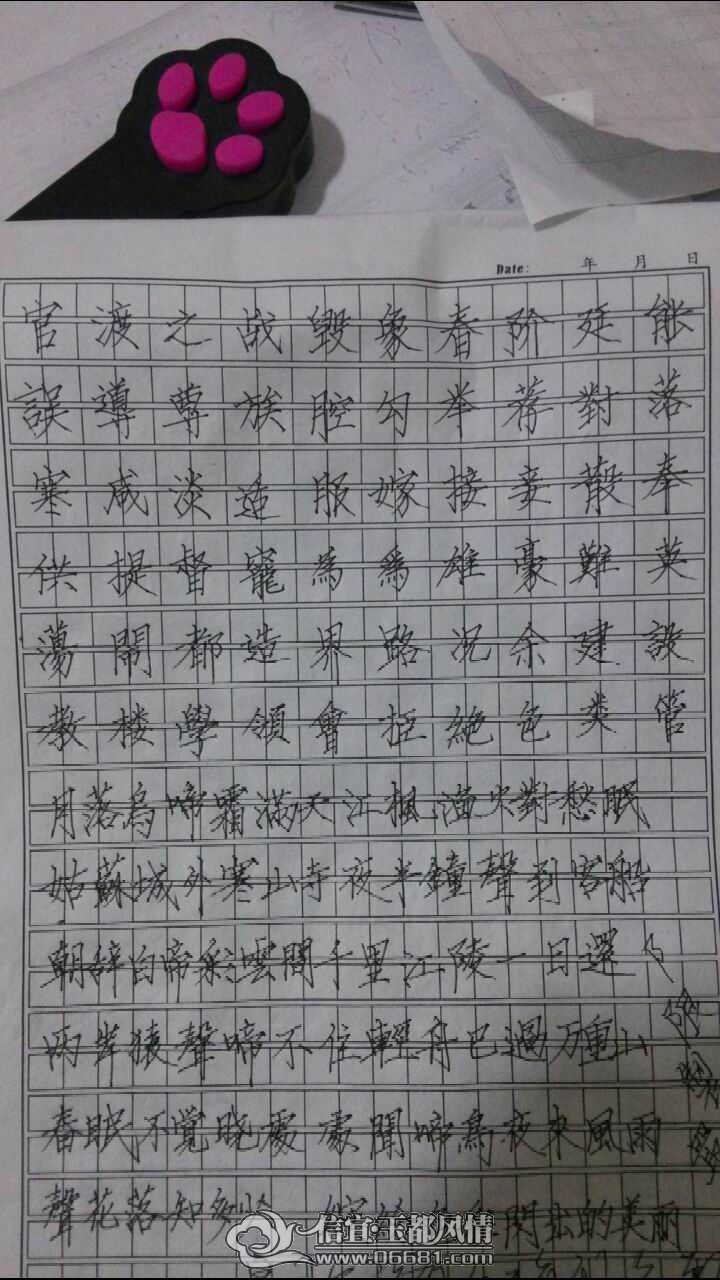 Date: 年 月 日
官渡之战毁象春阶廷能
誤導尊族腔勾举荐對落
寒咸淡适服嫁接妾散奉
供提督寵為爲雄豪難英
蕩開都造界路况余建設
教楼學領會拒絶色类管
月落烏啼霜滿天江楓漁火對愁眠
姑蘇城外寒山寺夜半鐘聲到客船
朝辞白帝彩雲間千里江陵一日還
两岸猿聲啼不住輕舟已過万重山
春眠不覺晓處處聞啼鳥夜来風雨
聲花落知多 的美丽
信宜·玉都风情
www.06681.com